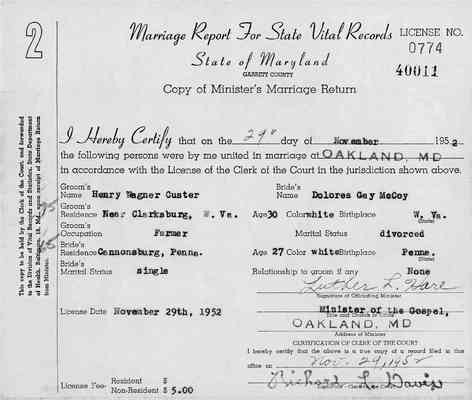 2
Marriage Report For State Vital Records
LICENSE NO.
0774
State of Maryland
GARRETT COUNTY
40011
Copy of Minister's Marriage Return
I Hereby Certify that on the 29" day of November 1952
the following persons were by me united in marriage at OAKLAND, MD
in accordance with the License of the Clerk of the Court in the jurisdiction shown above.
Groom's Name Henry Wagner Custer Bride's Name Dolores Gay McCoy
Groom's Residence Near Clarksburg, W. Va. Age 30 Color white Birthplace W. Va.
Groom's Occupation Farmer Marital Status divorced
Bride's Residence Cannonsburg, Penna. Age 27 Color white Birthplace Penna.
Bride's Marital Status single Relationship to groom if any None
Luther L. Hare
Signature of Officiating Minister
License Date November 29th, 1952 Minister of the Gospel,
Title and Church
OAKLAND, MD
Address of Minister
CERTIFICATION OF CLERK OF THE COURT
I hereby certify that the above is a true copy of a record filed in this
office on Nov. 29, 1952
Richard L. Davis
License Fee- Resident $
Non-Resident $ 5.00
This copy to be held by the Clerk of the Court, and forwarded
to the Division of Vital Records and Statistics, State Department
of Health, Baltimore, 18, Md., upon receipt of Marriage Return
from Minister.